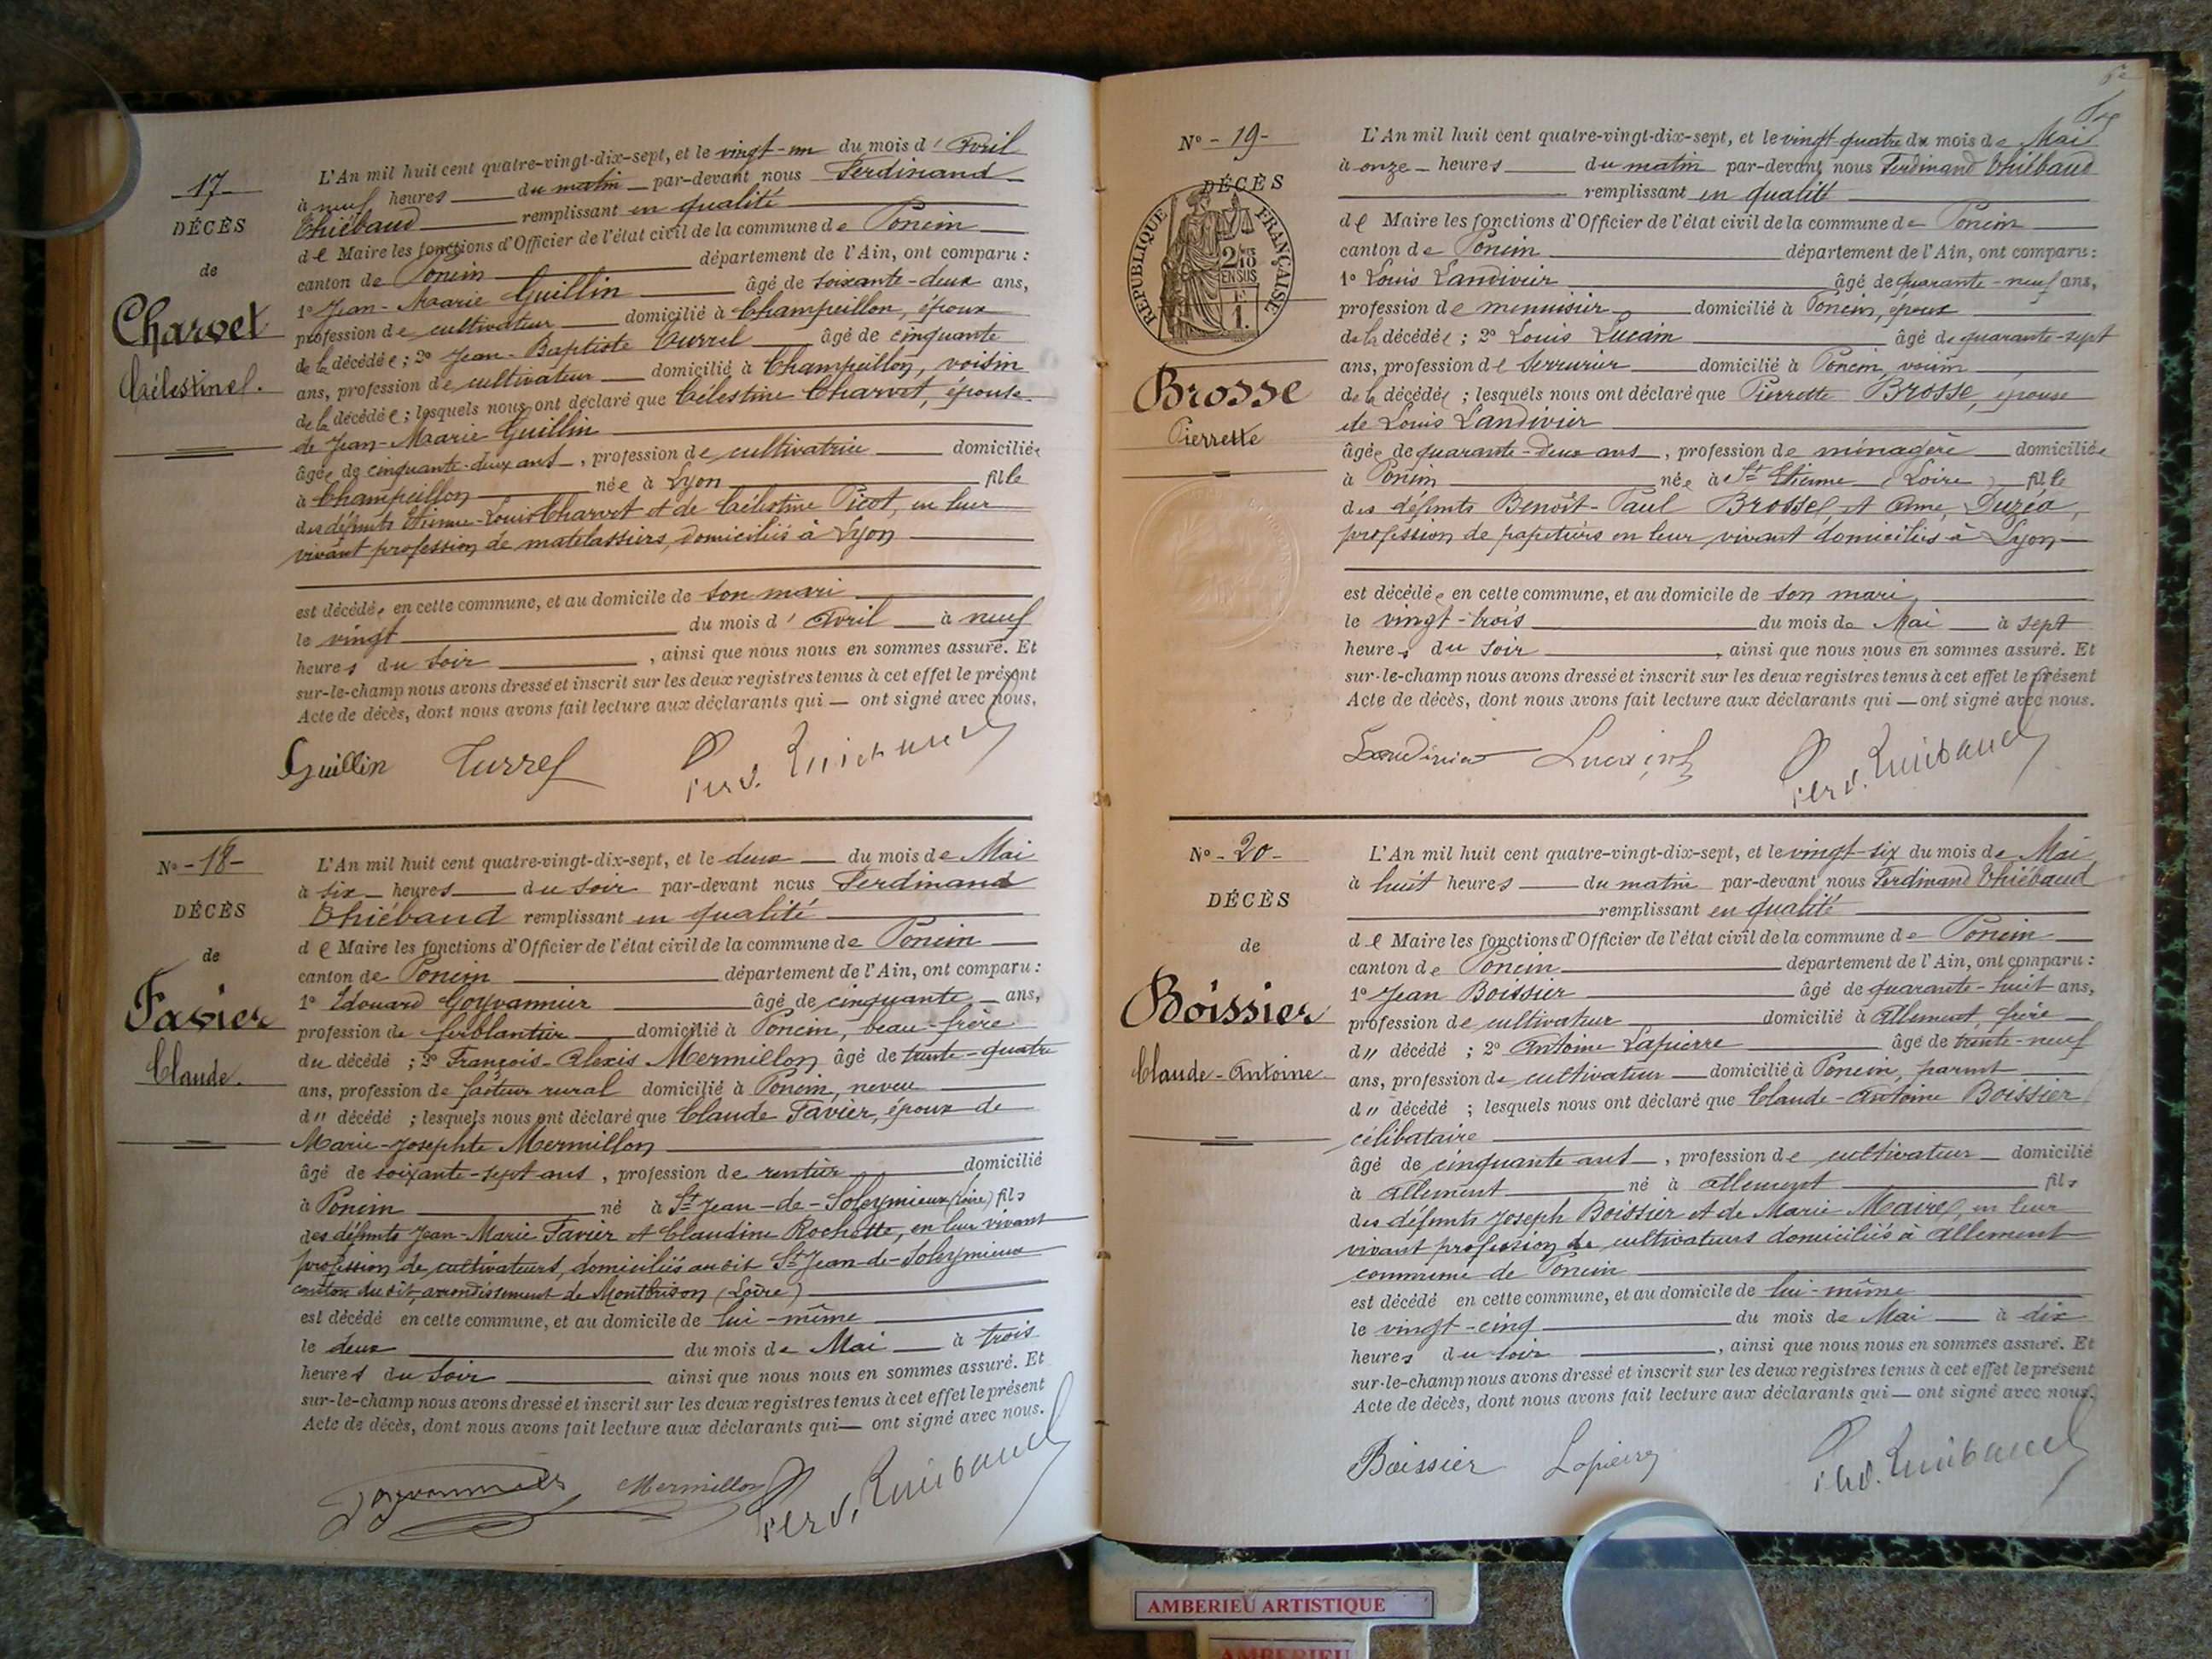 17
DÉCÈS
de
Charvet
Célestine
L'An mil huit cent quatre-vingt-dix-sept, et le vingt-un du mois d'Avril
à neuf heures du matin par-devant nous Ferdinand
Thiébaud remplissant en qualité
de Maire les fonctions d'Officier de l'état civil de la commune de Poncin
canton de Poncin département de l'Ain, ont comparu :
1° Jean-Marie Guillin âgé de soixante-deux ans,
profession de cultivateur domicilié à Champeillon, époux
de la décédée ; 2° Jean-Baptiste Turrel âgé de cinquante
ans, profession de cultivateur domicilié à Champeillon, voisin
de la décédée ; lesquels nous ont déclaré que Célestine Charvet, épouse
de Jean-Marie Guillin
âgée de cinquante-deux ans, profession de cultivatrice domiciliée
à Champeillon née à Lyon fille
des défunts Etienne-Louis Charvet et de Célestine Picot, en leur
vivant profession de matelassiers, domiciliés à Lyon
est décédée en cette commune, et au domicile de son mari
le vingt du mois d'Avril à neuf
heures du soir, ainsi que nous nous en sommes assuré. Et
sur-le-champ nous avons dressé et inscrit sur les deux registres tenus à cet effet le présent
Acte de décès, dont nous avons fait lecture aux déclarants qui — ont signé avec nous.
Guillin Turrel Ferd. Thiébaud
N° - 18 -
DÉCÈS
de
Favier
Claude.
L'An mil huit cent quatre-vingt-dix-sept, et le deux du mois de Mai
à six heures du soir par-devant nous Ferdinand
Thiébaud remplissant en qualité
de Maire les fonctions d'Officier de l'état civil de la commune de Poncin
canton de Poncin département de l'Ain, ont comparu :
1° Edouard Goyvannier âgé de cinquante ans,
profession de ferblantier domicilié à Poncin, beau-frère
du décédé ; 2° François-Alexis Mermillon âgé de trente-quatre
ans, profession de facteur rural domicilié à Poncin, neveu
d" décédé ; lesquels nous ont déclaré que Claude Favier, époux de
Marie-Josephte Mermillon
âgé de soixante-sept ans, profession de rentier domicilié
à Poncin né à St Jean-de-Soleymieux (Loire) fils
des défunts Jean-Marie Favier et Claudine Rochette, en leur vivant
profession de cultivateurs, domiciliés audit St Jean-de-Soleymieux
canton dudit, arrondissement de Montbrison (Loire)
est décédé en cette commune, et au domicile de lui-même
le deux du mois de Mai à trois
heures du soir ainsi que nous nous en sommes assuré. Et
sur-le-champ nous avons dressé et inscrit sur les deux registres tenus à cet effet le présent
Acte de décès, dont nous avons fait lecture aux déclarants qui — ont signé avec nous.
Goyvannier Mermillon Ferd. Thiébaud
N° - 19 -
DÉCÈS
RÉPUBLIQUE FRANÇAISE
2/10 EN SUS
1.
Brosse
Pierrette
L'An mil huit cent quatre-vingt-dix-sept, et le vingt-quatre du mois de Mai
à onze heures du matin par-devant nous Ferdinand Thiébaud
remplissant en qualité
de Maire les fonctions d'Officier de l'état civil de la commune de Poncin
canton de Poncin département de l'Ain, ont comparu :
1° Louis Landivier âgé de quarante-neuf ans,
profession de menuisier domicilié à Poncin, époux
de la décédée ; 2° Louis Lucain âgé de quarante-sept
ans, profession de serrurier domicilié à Poncin, voisin
de la décédée ; lesquels nous ont déclaré que Pierrette Brosse, épouse
de Louis Landivier
âgée de quarante-deux ans, profession de ménagère domiciliée
à Poncin née à St Etienne (Loire) fille
des défunts Benoît-Paul Brosse, et Anne Duzéa,
profession de papetiers en leur vivant domiciliés à Lyon
est décédée en cette commune, et au domicile de son mari
le vingt-trois du mois de Mai à sept
heures du soir, ainsi que nous nous en sommes assuré. Et
sur-le-champ nous avons dressé et inscrit sur les deux registres tenus à cet effet le présent
Acte de décès, dont nous avons fait lecture aux déclarants qui — ont signé avec nous.
Landivier Lucain Ferd. Thiébaud
N° - 20 -
DÉCÈS
de
Boissier
Claude-Antoine
L'An mil huit cent quatre-vingt-dix-sept, et le vingt-six du mois de Mai
à huit heures du matin par-devant nous Ferdinand Thiébaud
remplissant en qualité
de Maire les fonctions d'Officier de l'état civil de la commune de Poncin
canton de Poncin département de l'Ain, ont comparu :
1° Jean Boissier âgé de quarante-huit ans,
profession de cultivateur domicilié à Allement, frère
d" décédé ; 2° Antoine Lapierre âgé de trente-neuf
ans, profession de cultivateur domicilié à Poncin, parent
d" décédé ; lesquels nous ont déclaré que Claude-Antoine Boissier
célibataire
âgé de cinquante ans, profession de cultivateur domicilié
à Allement né à Allement fils
des défunts Joseph Boissier et de Marie Maire, en leur
vivant profession de cultivateurs domiciliés à Allement
commune de Poncin
est décédé en cette commune, et au domicile de lui-même
le vingt-cinq du mois de Mai à dix
heures du soir, ainsi que nous nous en sommes assuré. Et
sur-le-champ nous avons dressé et inscrit sur les deux registres tenus à cet effet le présent
Acte de décès, dont nous avons fait lecture aux déclarants qui — ont signé avec nous.
Boissier Lapierre Ferd. Thiébaud
AMBERIEU ARTISTIQUE
AMBERIEU